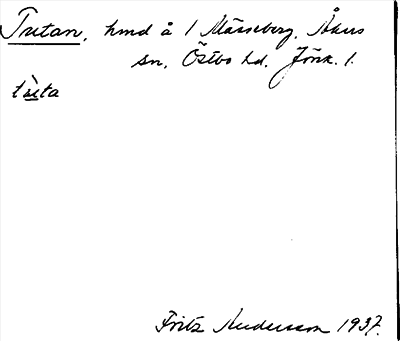 Tretan, hmd å 1 Mässeberg, Åkers
sn, Östbo hd. Jönk. l.
Fritz Andersson 1937.